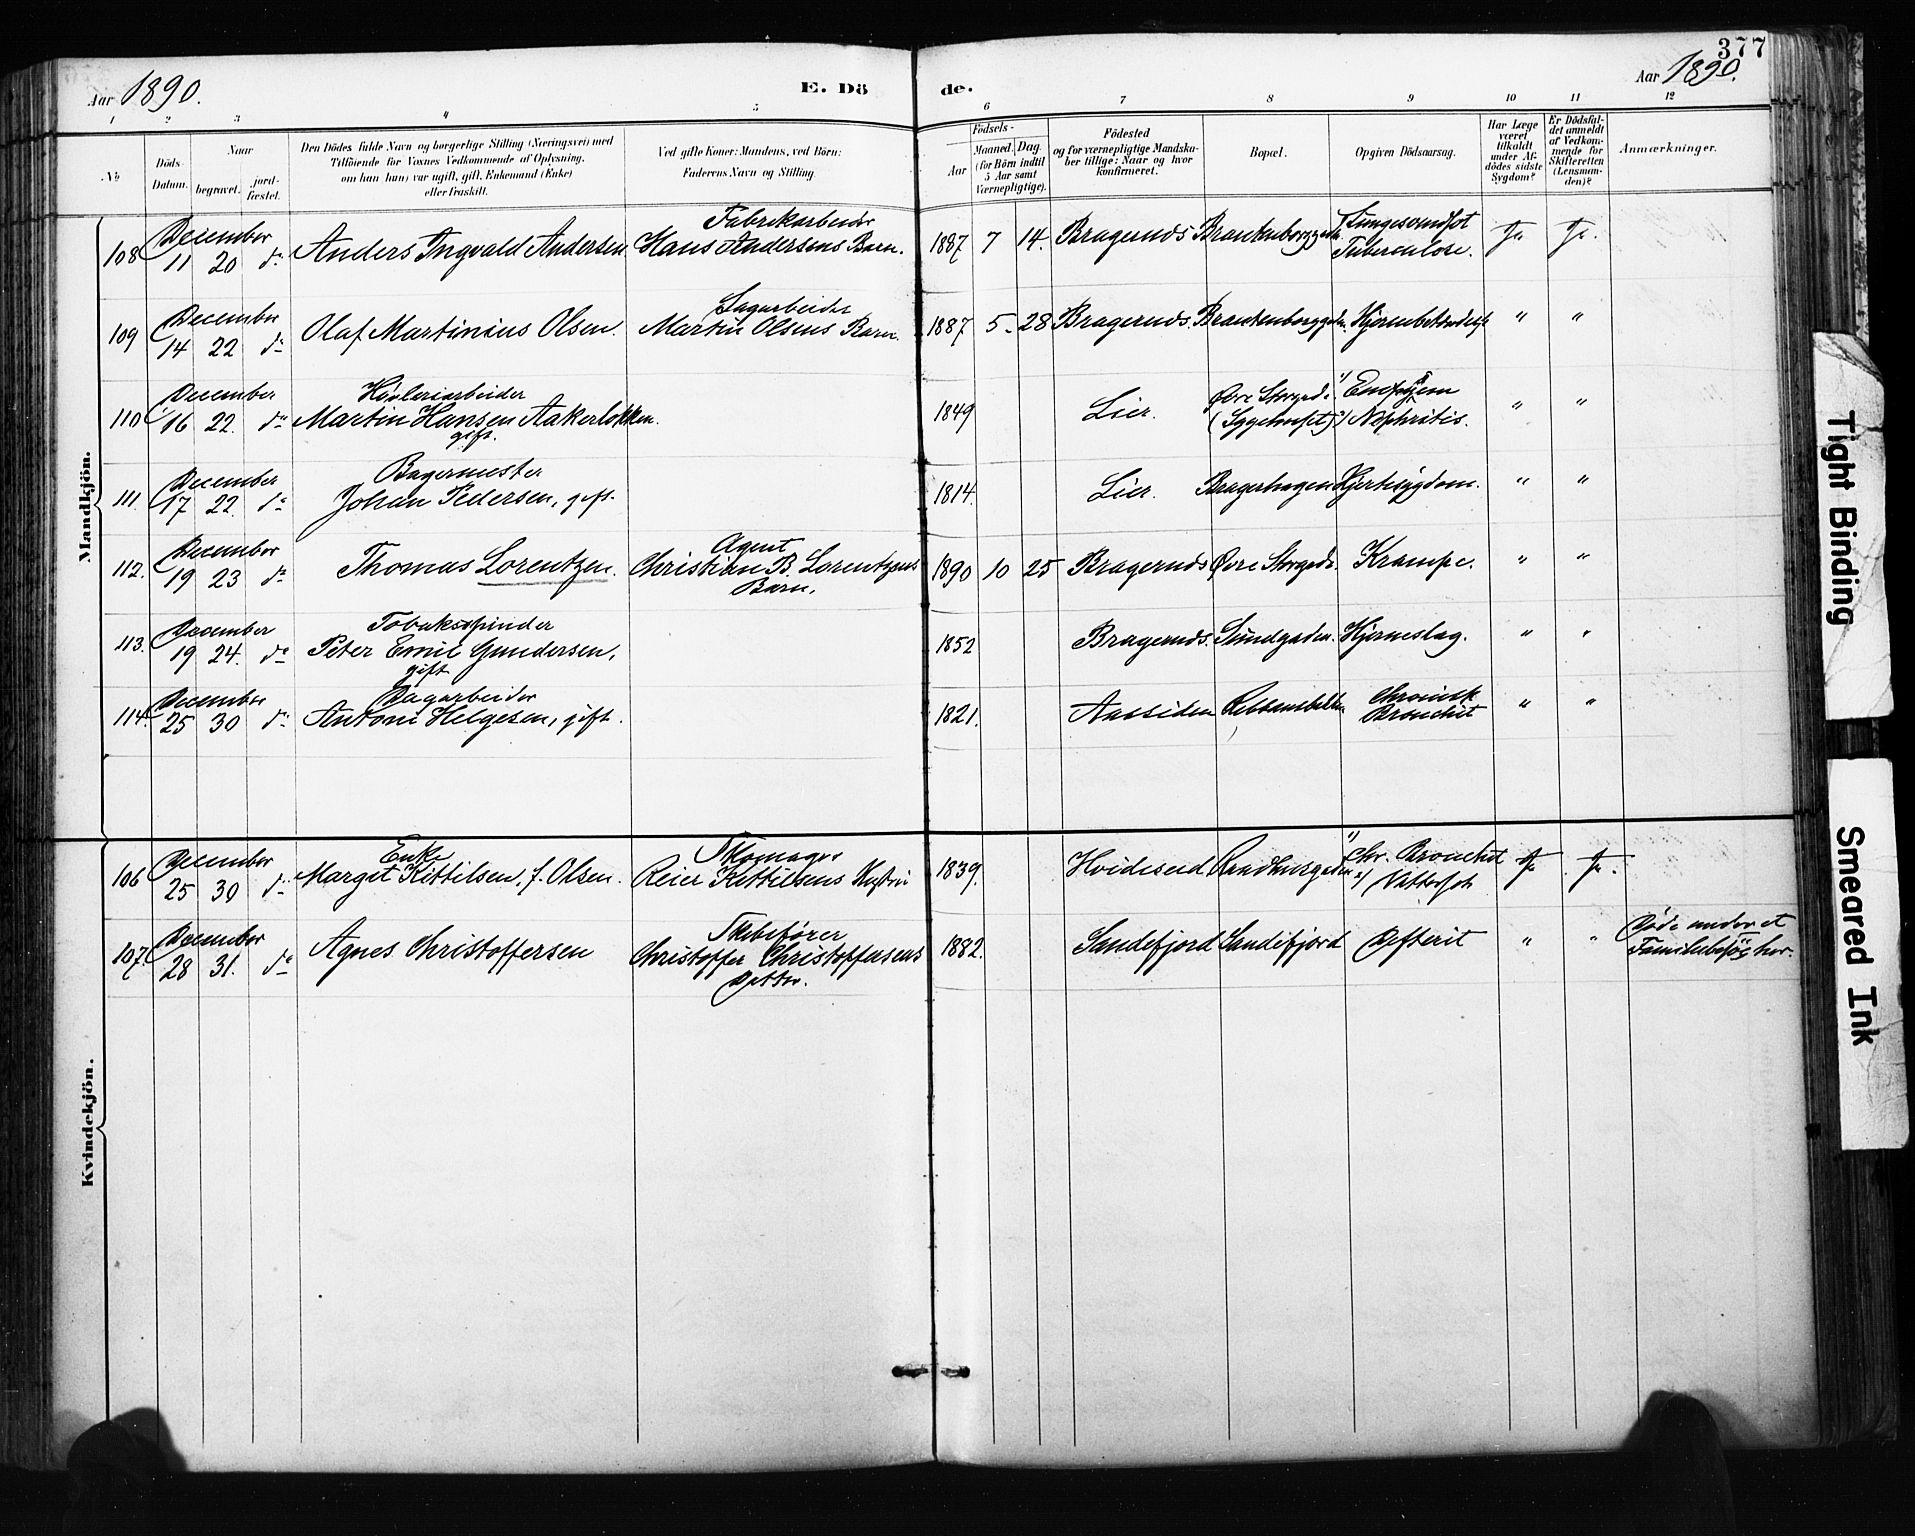 377
Aar 1890.
E. Dö de.
Aar 1890.
1 2 3 4 5 6 7 8 9 10 11 12
No
Döds-
Datum.
Naar
begravet.
jord-
fæstet.
Den Dödes fulde Navn og borgerlige Stilling (Næringsvei) med
Tilföiende for Voxnes Vedkommende af Oplysning,
om han (hun) var ugift, gift, Enkemand (Enke)
eller fraskilt.
Ved gifte Koner: Mandens, ved Börn:
Faderens Navn og Stilling.
Födsels-
Aar
Maaned. Dag.
(for Börn indtil
5 Aar samt
Værnepligtige).
Födested
og for værnepligtige Mandska-
ber tillige: Naar og hvor
konfirmeret.
Bopæl.
Opgiven Dödsaarsag.
Har Læge
været
tilkaldt
under Af-
dödes sidste
Sygdom?
Er Dödsfal-
det anmeldt
af Vedkom-
mende for
Skifteretten
(Lensman-
den)?
Anmærkninger.
Mandkjön.
December Fabrikarbeider Lungesvindsot
108 11 20 do Anders Ingvald Andersen Hans Andersens Barn. 1887 7 14. Bragernæs Brantenborggaden Tuberculose. Ja Ja.
December Sagarbeider
109 14 22 do Olaf Martinius Olsen. Martin Olsens Barn. 1887 5 28 Bragernæs. Brantenborggaden. Hjernebetændelse " "
December Høvleriarbeider Øvre Storgade 1) Empyem
110 16 22. do Martin Hansen Aakerløkken. 1849 Lier. (Sygehuset) 2) Nephritis. " "
gift.
December Bagermester
111. 17 22. do Johan Pedersen, gift. 1814. Lier. Bragerhagen Hjertesygdom. " "
December Agent
112. 19 23 do Thomas Lorentzen. Christian B. Lorentzens 1890 10 25 Bragernæs Øvre Storgade. Krampe. " "
Barn.
December Tobaksspinder
113. 19 24. do Peter Emil Gundersen, 1852 Bragernæs. Sundgaden. Hjerneslag. " "
gift
December Dagarbeider chronisk
114. 25 30 do Anton Helgesen, gift. 1821. Aassiden Bronchit " "
Kvindekjön.
December Enke Skomager 1) chr. Bronchit
106 25 30 do Margit Kittilsen, f. Olsen. Reier Kittilsens Hustru 1839. Hvideseid Raadhusgaden 2) Vattersot Ja Ja.
December Skibsfører Døde under et
107. 28 31. do Agnes Christoffersen Christoffer Christoffersens 1882. Sandefjord Sandefjord Difterit " " Familiebesøg her.
Datter.
Tight Binding
Smeared Ink